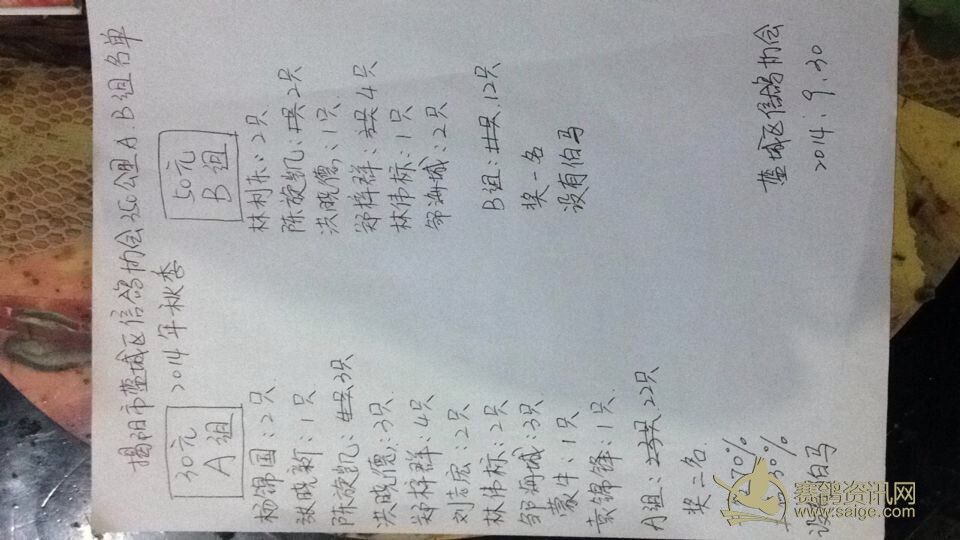 揭阳市蓝城区信鸽协会250公里A.B组名单
2014年秋季
30元
A组
杨锦国:2只
张晓新:1只
陈旋凯:3只
洪晓德:3只
郑梓群:4只
刘宏:2只
林伟标:2只
邹海城:3只
蒙牛:1只
京锦锋:1只
A组:22只
奖二名
70%
30%
设 伯马
50元
B组
林利东:2只
陈旋凯:2只
洪晓德:1只
郑梓群:4只
林伟标:1只
邹海城:2只
B组:12只
奖一名
设有伯马
蓝城区信鸽协会
2014.9.30
赛鸽资讯网
www.saige.com